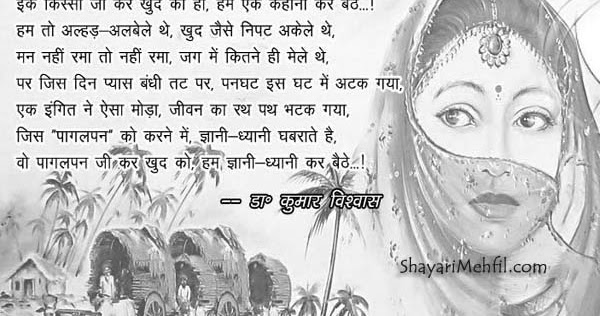 इक किस्सा जी कर खुद को ही, हम एक कहानी कर बैठे...!
हम तो अल्हड़–अलबेले थे, खुद जैसे निपट अकेले थे,
मन नहीं रमा तो नहीं रमा, जग में कितने ही मेले थे,
पर जिस दिन प्यास बंधी तट पर, पनघट इस घट में अटक गया,
एक इंगित ने ऐसा मोड़ा, जीवन का रथ पथ भटक गया,
जिस "पागलपन" को करने में, ज्ञानी–ध्यानी घबराते है,
वो पागलपन जी कर खुद को, हम ज्ञानी–ध्यानी कर बैठे...!
-- डा॰ कुमार विश्वास
ShayariMehfil.com